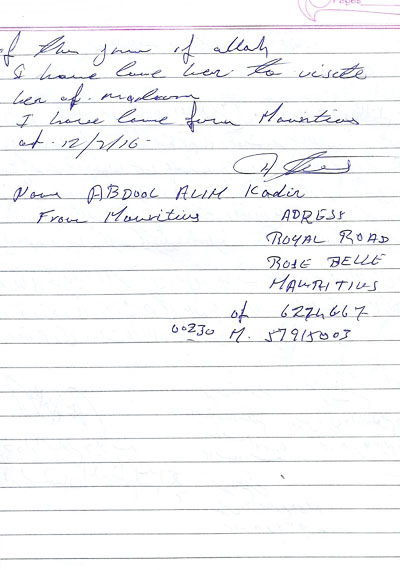 I have come her to visite
her of. madam
I have come from Mauritius
at. 12/2/16
Name ABDOOL ALIM Kadir
From Mauritius
ADRESS
ROYAL ROAD
ROSE BELLE
MAURITIUS
of 6274667
00230 M. 57915003